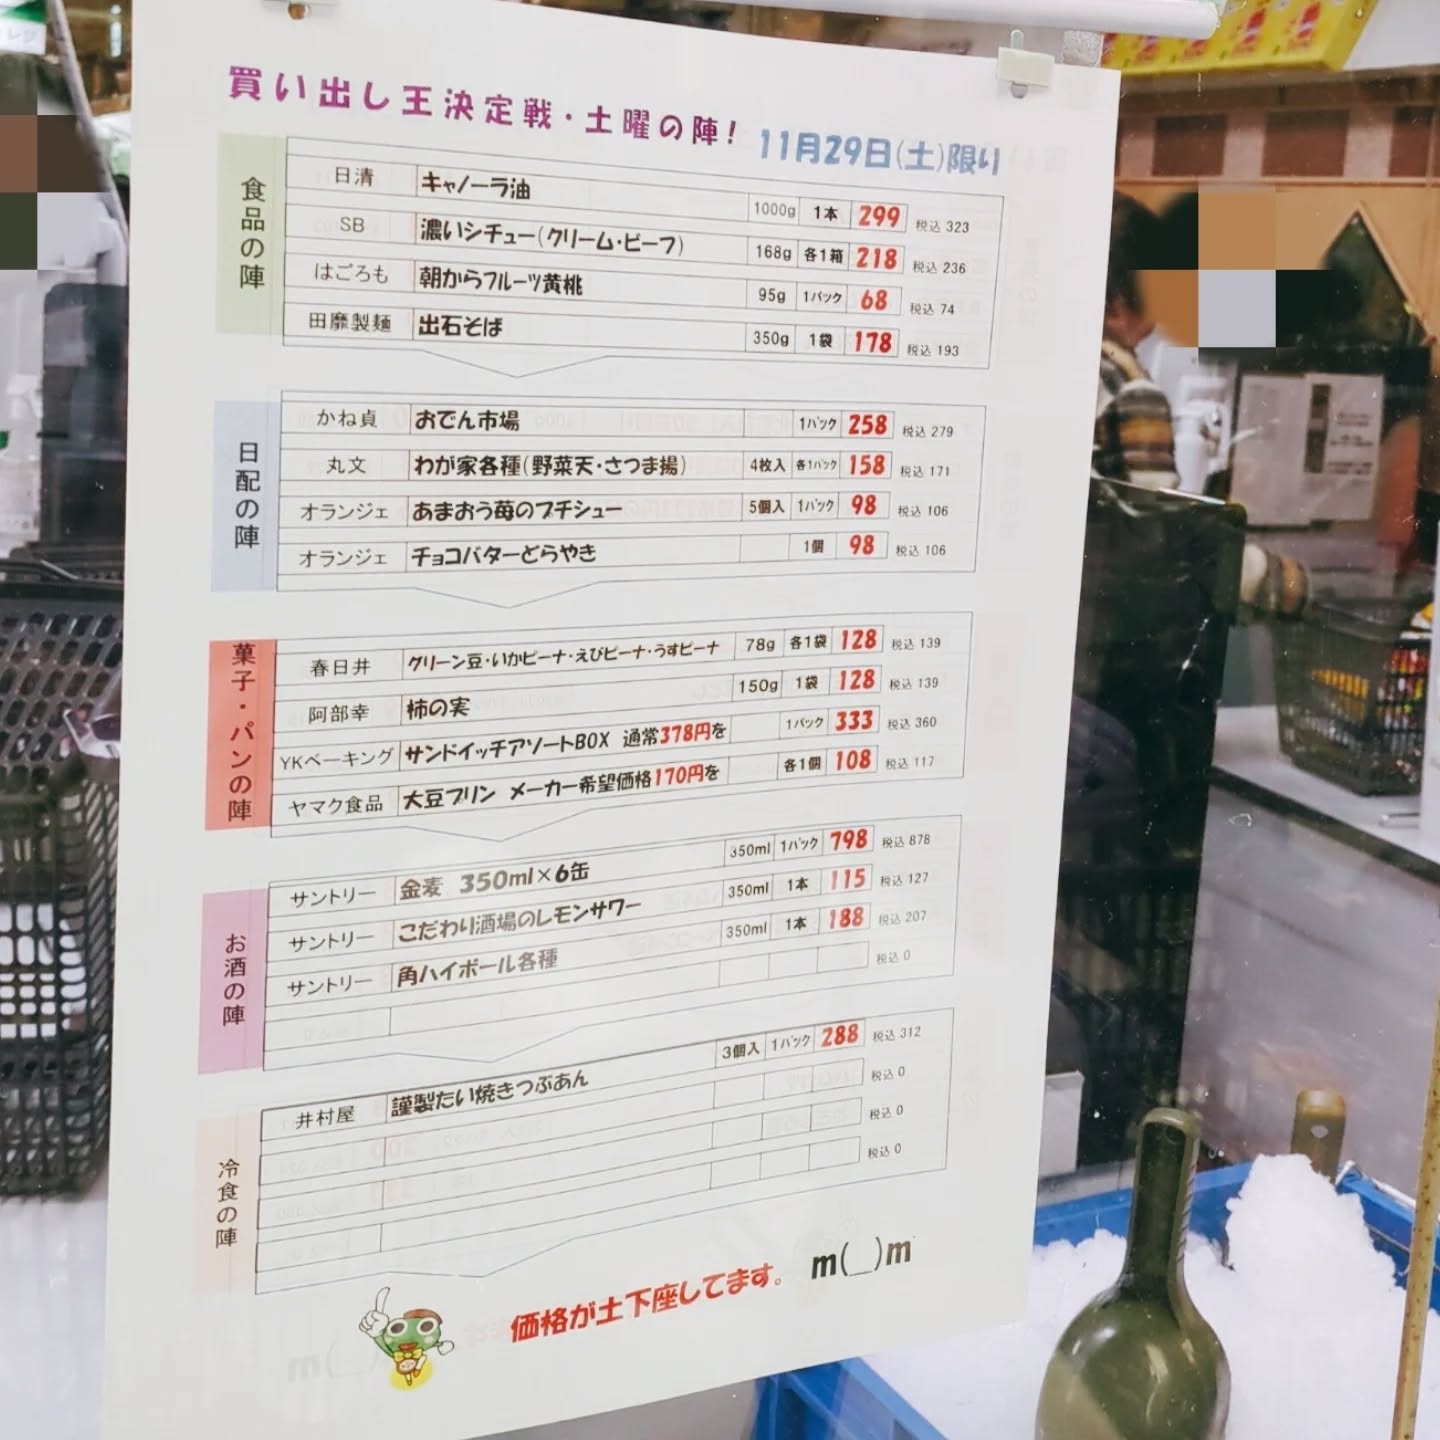 買い出し王決定戦・土曜の陣!
11月29日(土)限り
食品の陣
日清 キャノーラ油 1000g 1本 299 税込 323
SB 濃いシチュー(クリーム・ビーフ) 168g 各1箱 218 税込 236
はごろも 朝からフルーツ黄桃 95g 1パック 68 税込 74
田靡製麺 出石そば 350g 1袋 178 税込 193
日配の陣
かね貞 おでん市場 1パック 258 税込 279
丸文 わが家各種(野菜天・さつま揚) 4枚入 各1パック 158 税込 171
オランジェ あまおう苺のプチシュー 5個入 1パック 98 税込 106
オランジェ チョコバターどらやき 1個 98 税込 106
菓子・パンの陣
春日井 グリーン豆・いかピーナ・えびピーナ・うすピーナ 78g 各1袋 128 税込 139
阿部幸 柿の実 150g 1袋 128 税込 139
YKベーキング サンドイッチアソートBOX 通常378円を 1パック 333 税込 360
ヤマク食品 大豆プリン メーカー希望価格170円を 各1個 108 税込 117
お酒の陣
サントリー 金麦 350ml×6缶 350ml 1パック 798 税込 878
サントリー こだわり酒場のレモンサワー 350ml 1本 115 税込 127
サントリー 角ハイボール各種 350ml 1本 188 税込 207
税込 0
冷食の陣
井村屋 謹製たい焼きつぶあん 3個入 1パック 288 税込 312
税込 0
税込 0
税込 0
価格が土下座してます。 m(__)m